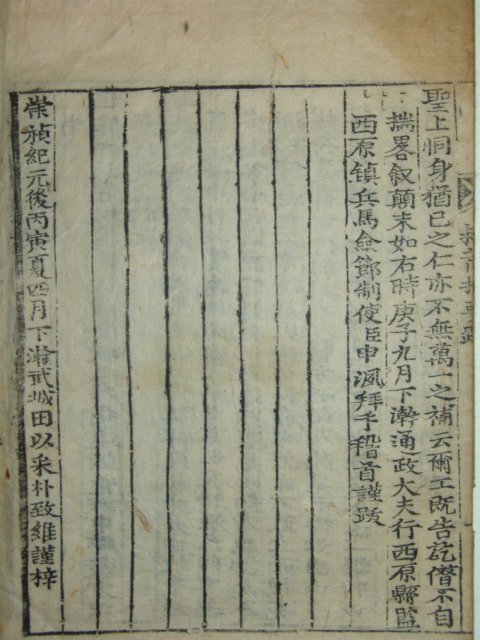 聖上恫身猶己之仁亦不無萬一之補云爾工既告訖僣不自
揣畧叙顛末如右時庚子九月下澣通政大夫行西原縣監
西原鎮兵馬僉節制使臣申渢拜手稽首謹跋
崇禎紀元後丙寅夏四月下澣武城田以采朴致維謹梓